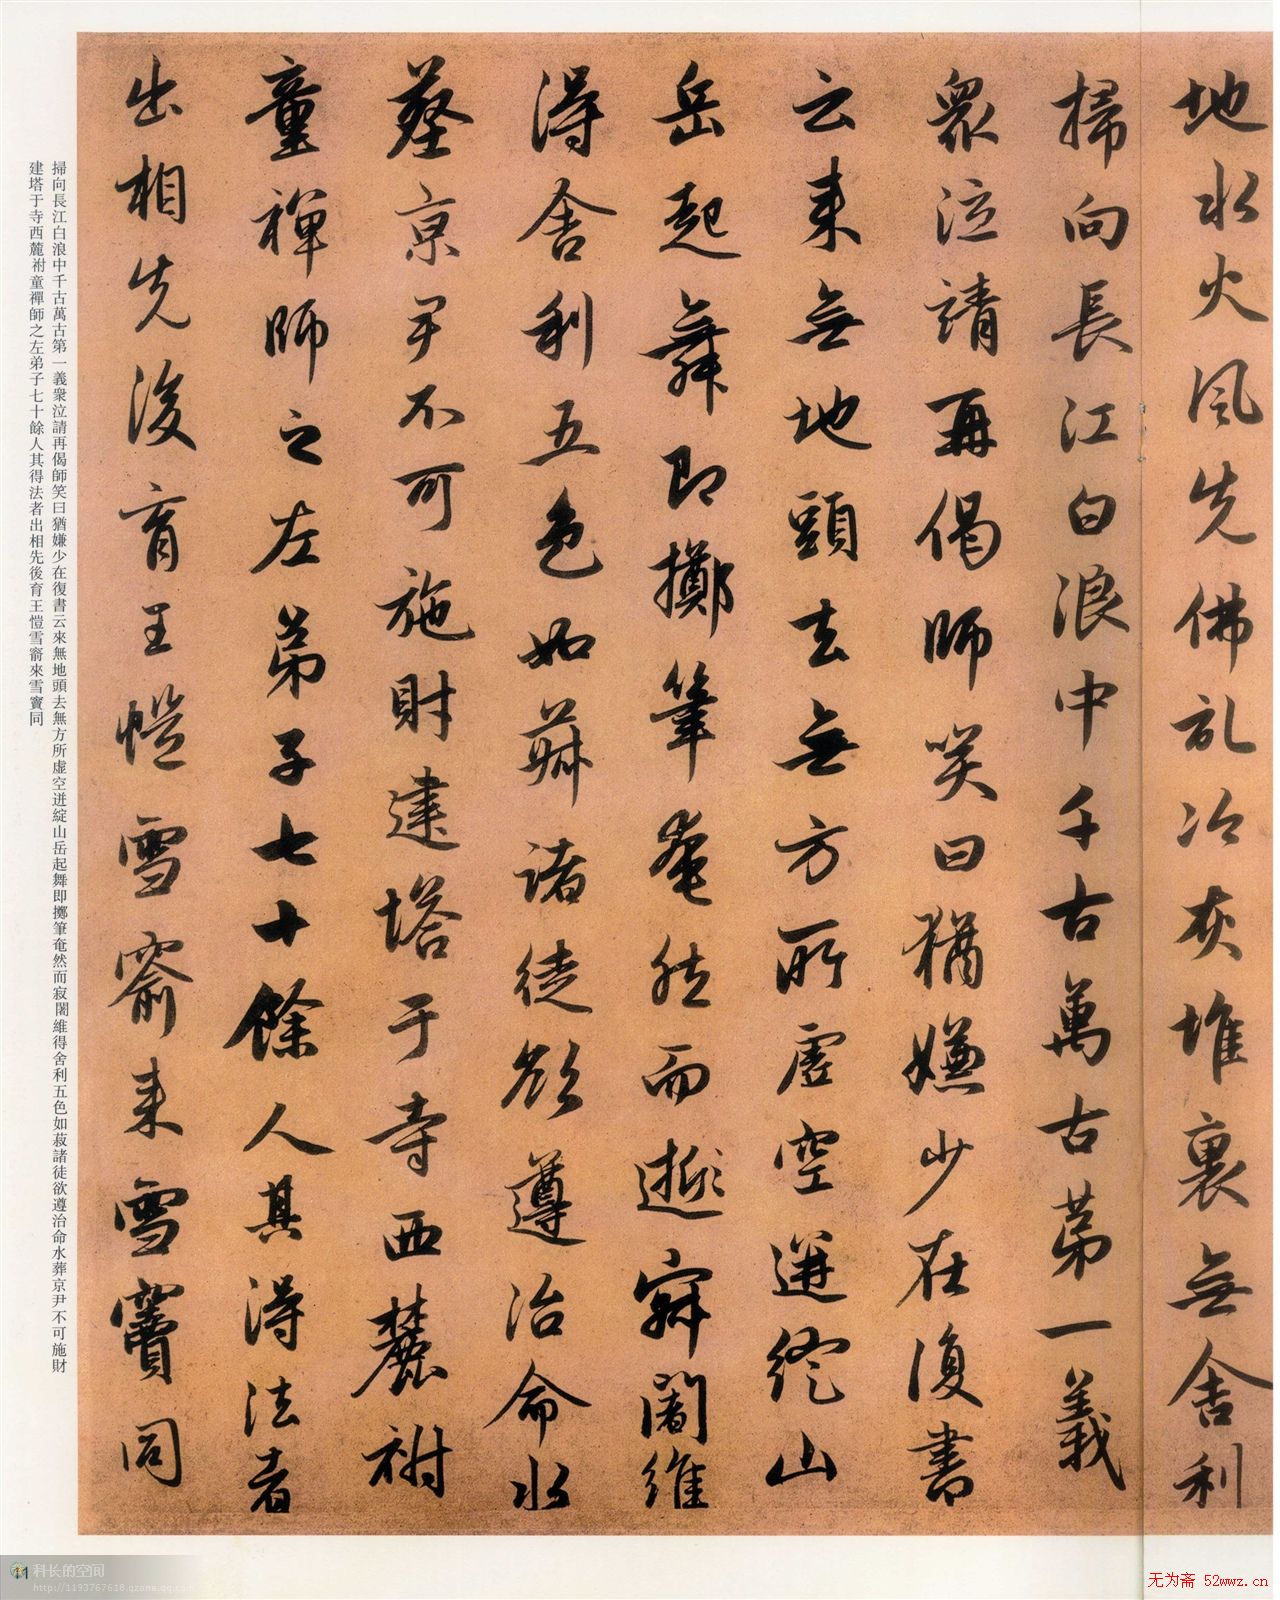 地水火風先佛記冷灰堆裏無舍利
掃向長江白浪中千古萬古第一義
眾泣請再偈師笑曰猶嫌少在復書
云来無地頭去無方所虛空迸綻山
岳起舞即擲筆奄然而逝寂闍維
得舍利五色如菽諸徒欲遵治命水
葬京尹不可施財建塔于寺西麓祔
童禪師之左弟子七十餘人其得法者
出相先後育王愷雪窬来雪竇同
掃向長江白浪中千古萬古第一義衆泣請再偈師笑曰猶嫌少在復書云來無地頭去無方所虛空迸綻山岳起舞即擲筆奄然而寂闍維得舍利五色如菽諸徒欲遵治命水葬京尹不可施財
建塔于寺西麓祔童禪師之左弟子七十餘人其得法者出相先後育王愷雪窬來雪竇同
科长的空间
http://1193767618.qzone.qq.com
无为斋 52wwz.cn